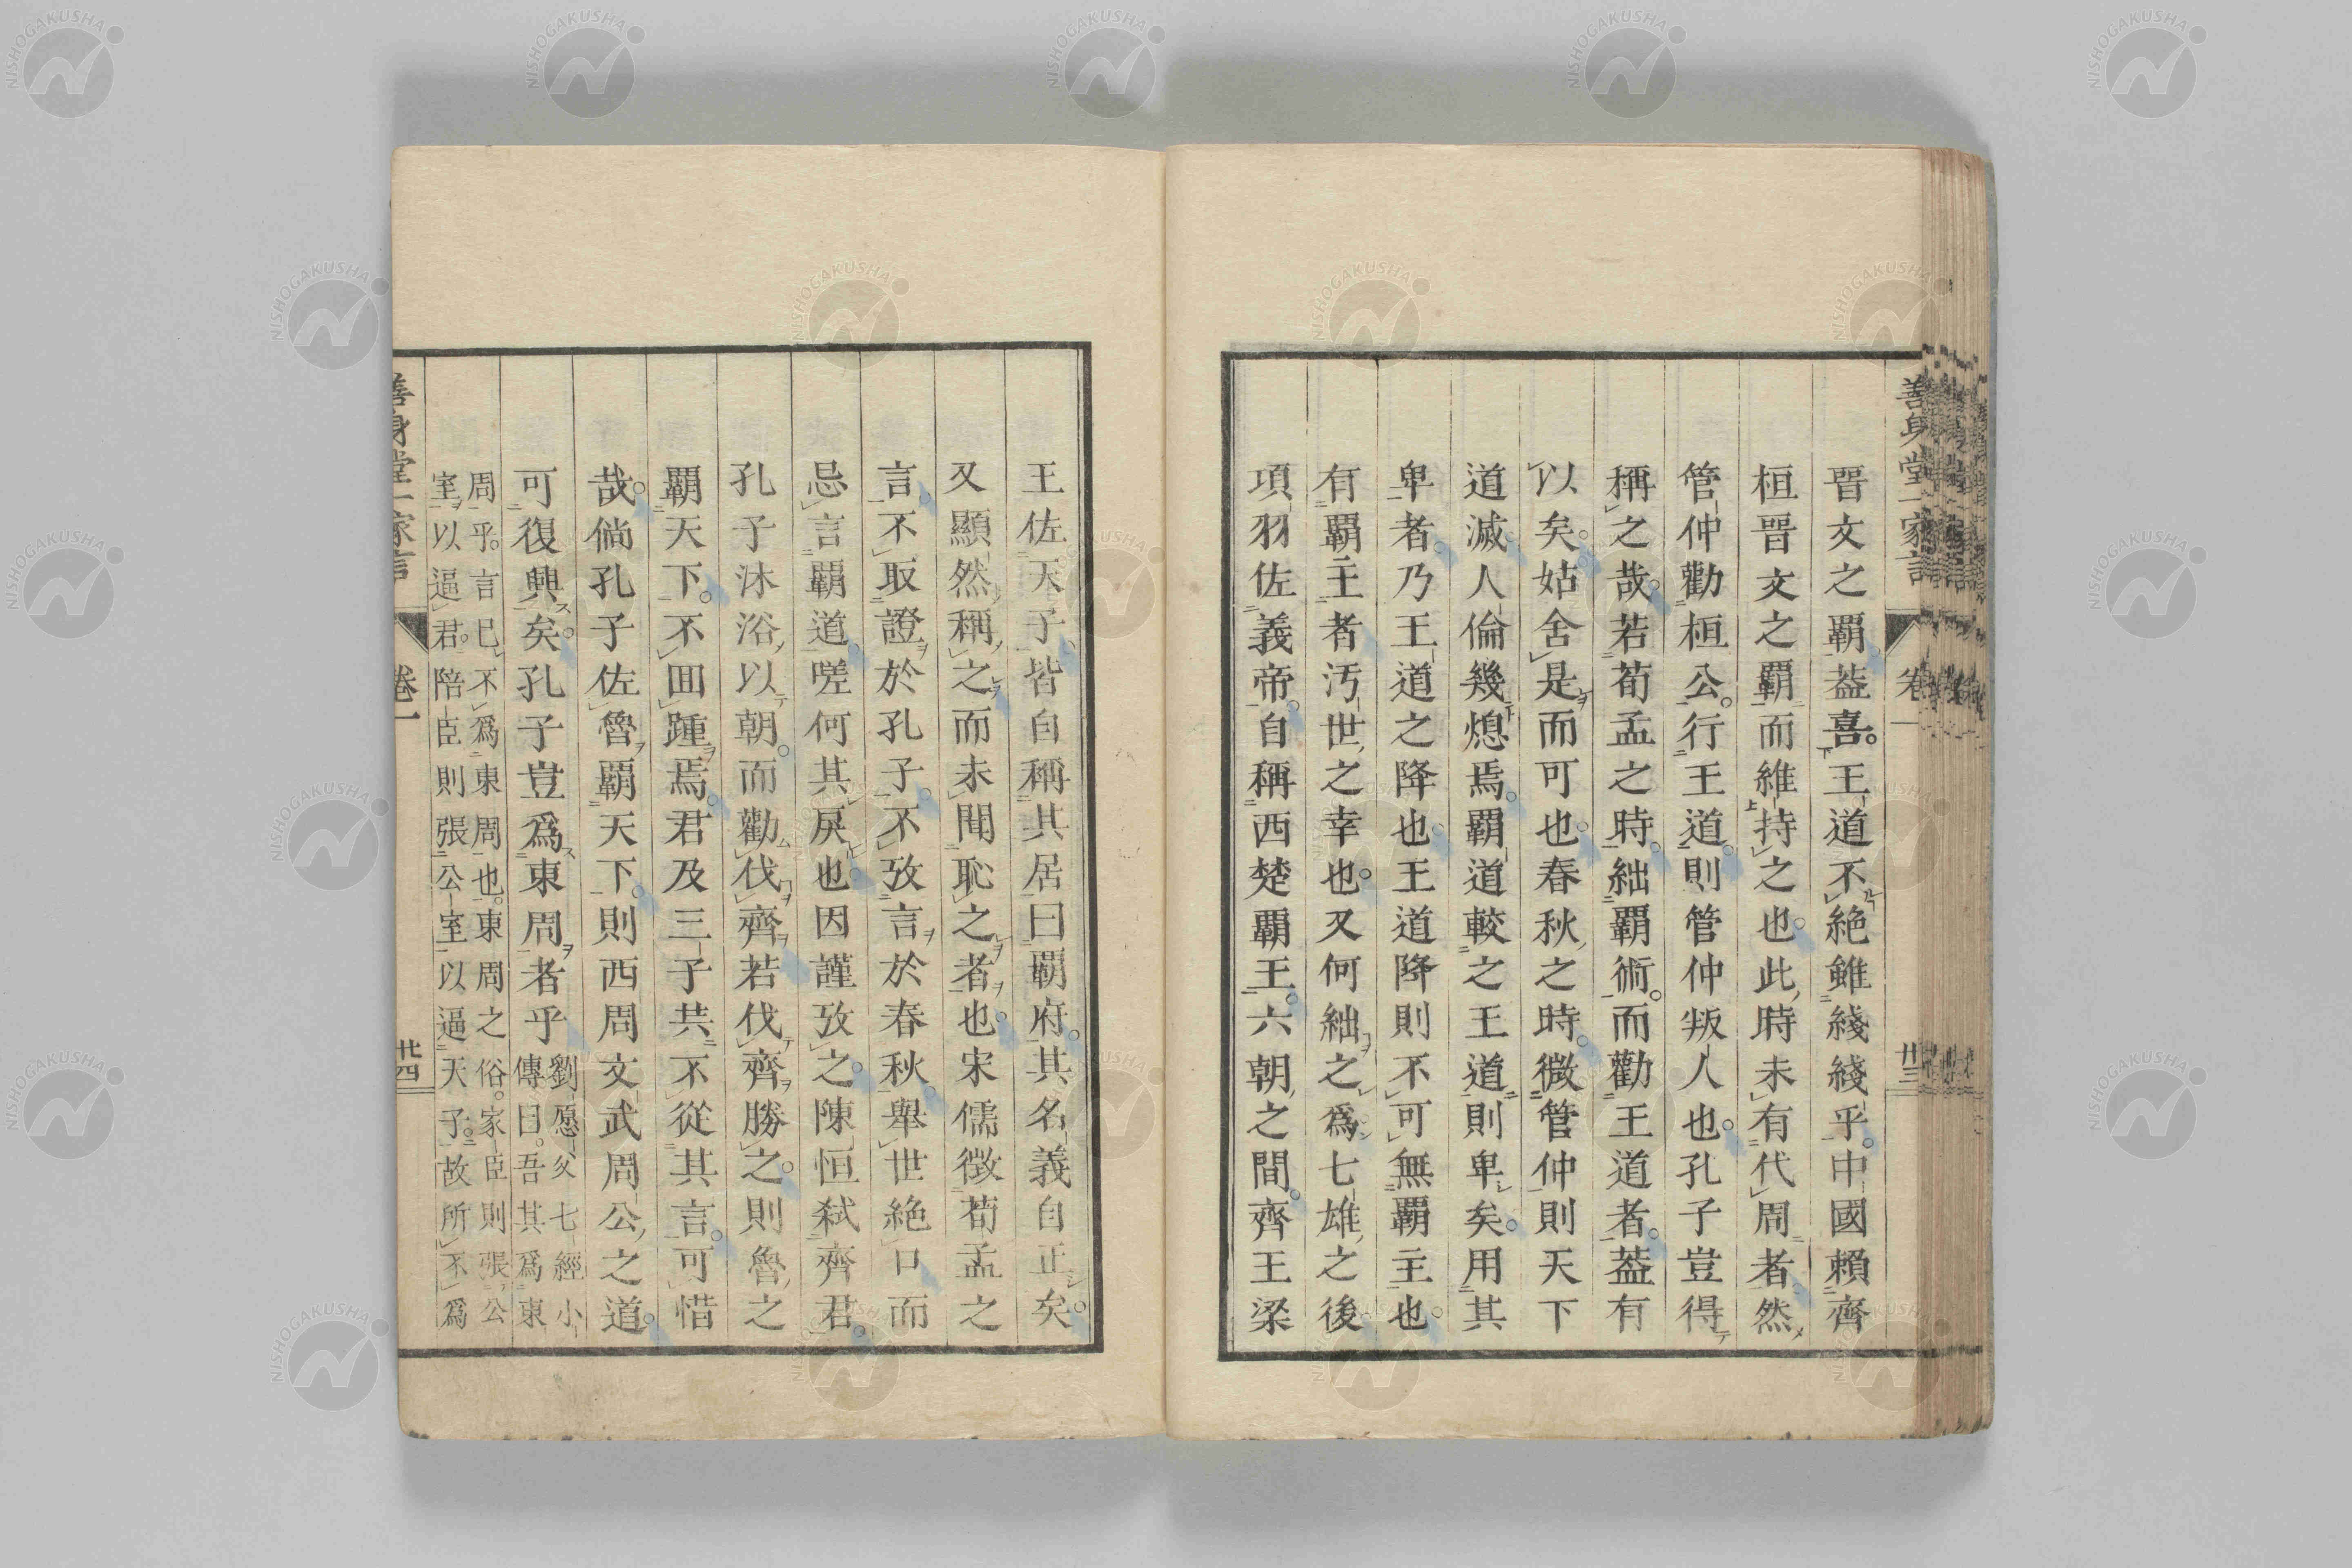 善身堂一家言 卷一 廿三
晋文之覇葢喜王道不絶雖綫綫乎中國賴齊
桓晋文之覇而維持之也此時未有代周者然
管仲勸桓公行王道則管仲叛人也孔子豈得
稱之哉若荀孟之時絀覇術而勸王道者葢有
以矣姑舍是而可也春秋之時微管仲則天下
道滅人倫幾熄焉覇道較之王道則卑矣用其
卑者乃王道之降也王道降則不可無覇主也
有覇主者汚世之幸也又何絀之爲七雄之後
項羽佐義帝自稱西楚覇王六朝之間齊王梁
王佐天子皆自稱其居曰覇府其名義自正矣
又顯然稱之而未聞恥之者也宋儒徴荀孟之
言不取證於孔子不攷言於春秋舉世絶口而
忌言覇道嗟何其戾也因謹攷之陳恒弑齊君
孔子沐浴以朝而勸伐齊若伐齊勝之則魯之
覇天下不回踵焉君及三子共不從其言可惜
哉倘孔子佐魯覇天下則西周文武周公之道
可復興矣孔子豈爲東周者乎
劉愿父七經小
傳曰吾其爲東
周乎言巳不爲東周也東周之俗家臣則張公
室以逼君陪臣則張公室以逼天子故所不爲
善身堂一家言 卷一 廿四
NISHOGAKUSHA